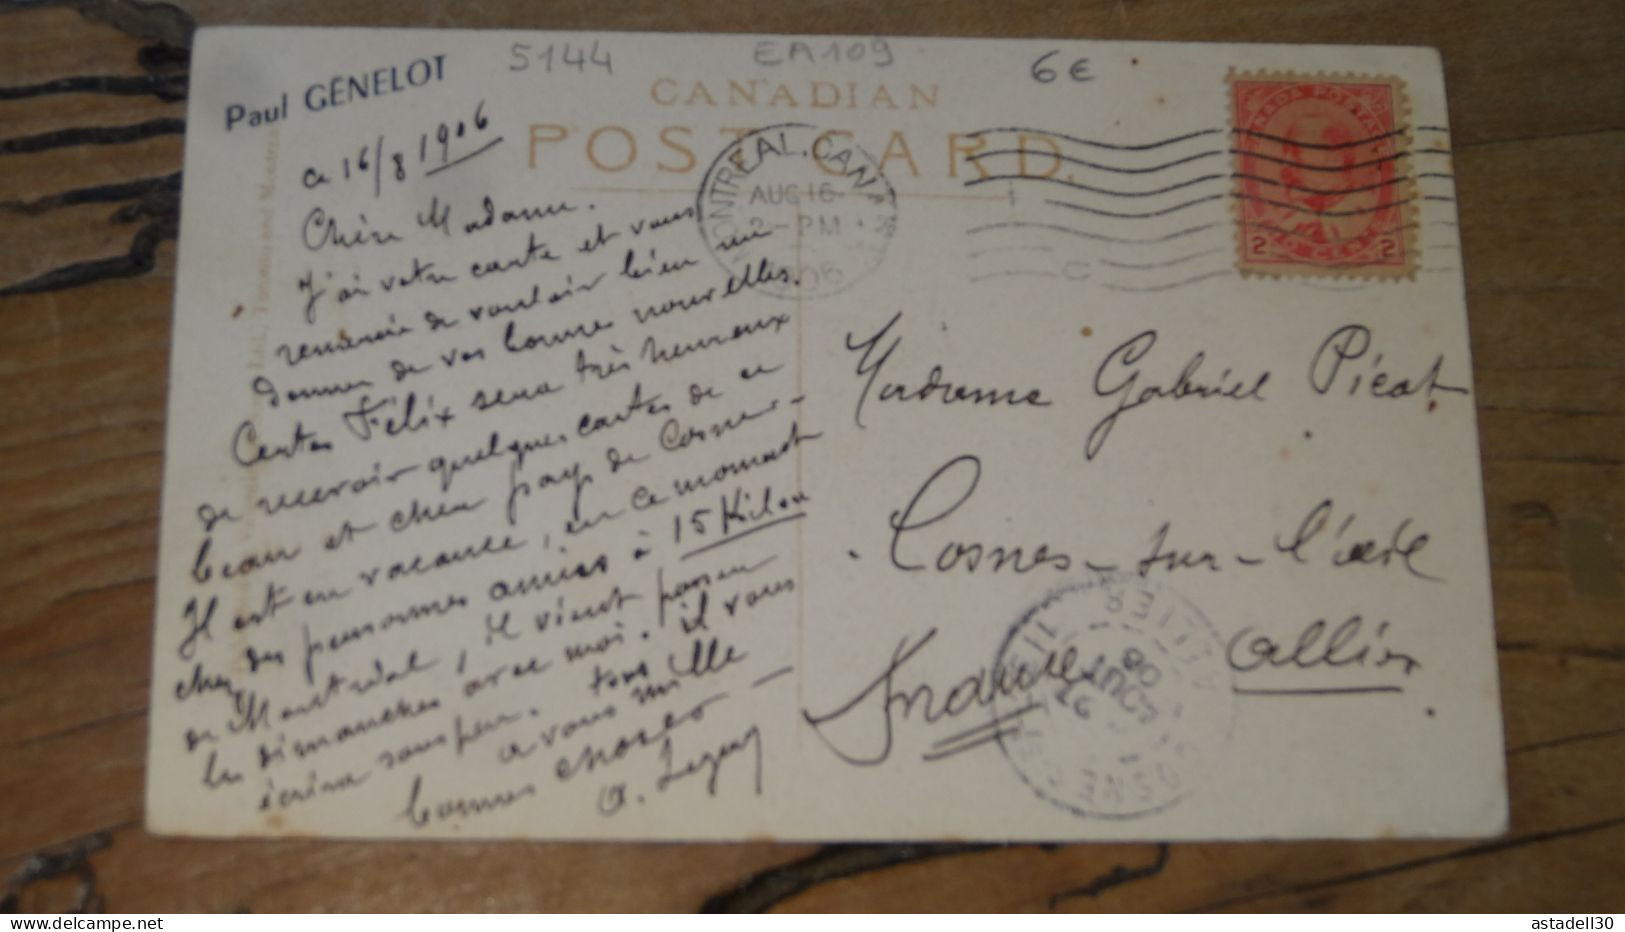 Paul GÉNELOT
5144
EA109
6€
CANADIAN
POST CARD.
MONTREAL. CANADA
AUG 16
2-PM
CANADA POSTAGE
2 CENTS 2
ce 16/8 1906
Chère Madame.
J'ai votre carte et vous
remercie de vouloir bien me
donner de vos bonnes nouvelles.
Certes Félix sera très heureux
de recevoir quelques cartes de ce
beau et cher pays de Cosne-
Il est en vacance, en ce moment
chez des personnes amies à 15 Kilom
de Montréal, il vient passer
les dimanches avec moi. il vous
écrira sous peu.
a vous mille
bonnes choses
Madame Gabriel Picat
Cosnes-sur-l'œil
Allier
France
COSNE
ALLIER
astadell30